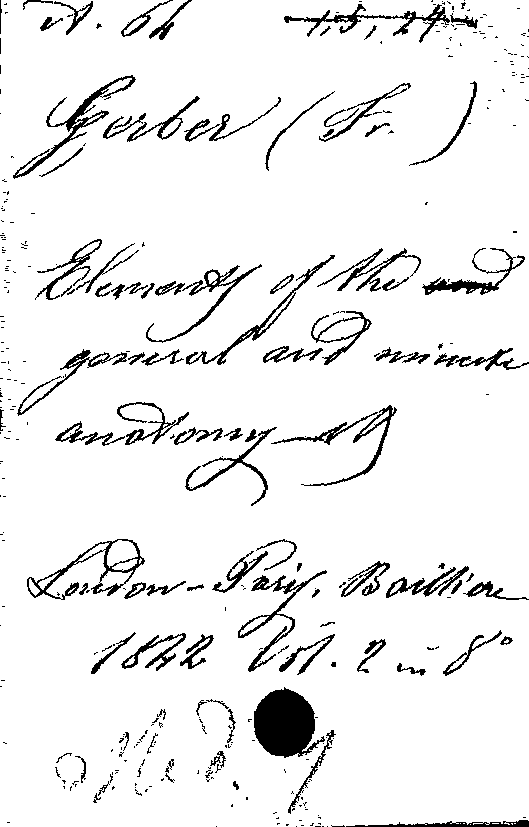 A. 64 1,5,24
Gerber (Fr.)
Elements of the and
general and minute
anatomy
London - Paris, Baillière
1842 Vol. 2 in 8°
Med. 9